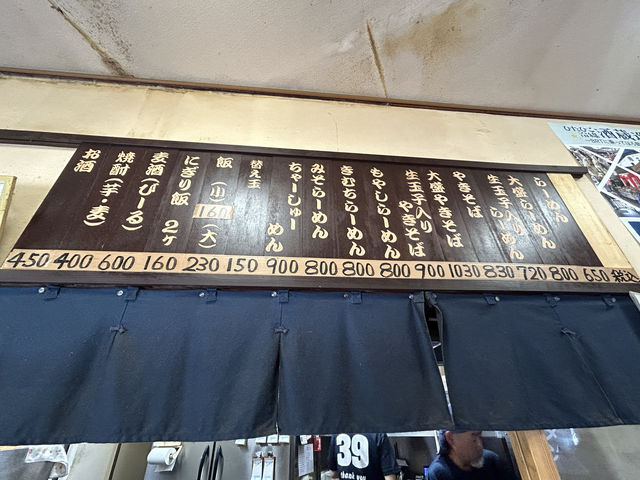 らーめん
大盛らーめん
生玉子入り
らーめん
やきそば
大盛やきそば
生玉子入り
やきそば
もやしらーめん
きむちらーめん
みそらーめん
ちゃーしゅー
めん
替え玉
飯(小)160(大)
にぎり飯 2ヶ
麦酒(びーる)
焼酎(芋・麦)
お酒
450 400 600 160 230 150 900 800 800 800 900 1030 830 720 800 650 税込
39
thank you